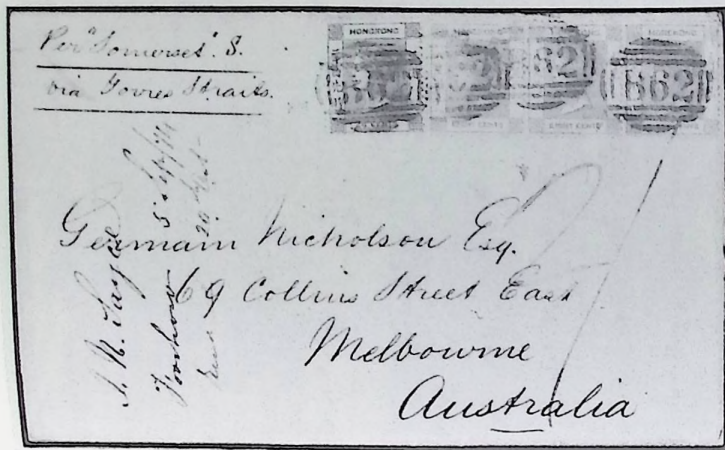 Per "Somerset" S.
via Torres Straits.
HONGKONG
B62
62
62
B62
EIGHT CENTS
Germain Nicholson Esq.
69 Collins Street East
Melbourne
Australia
Foochow 5 Sep/74